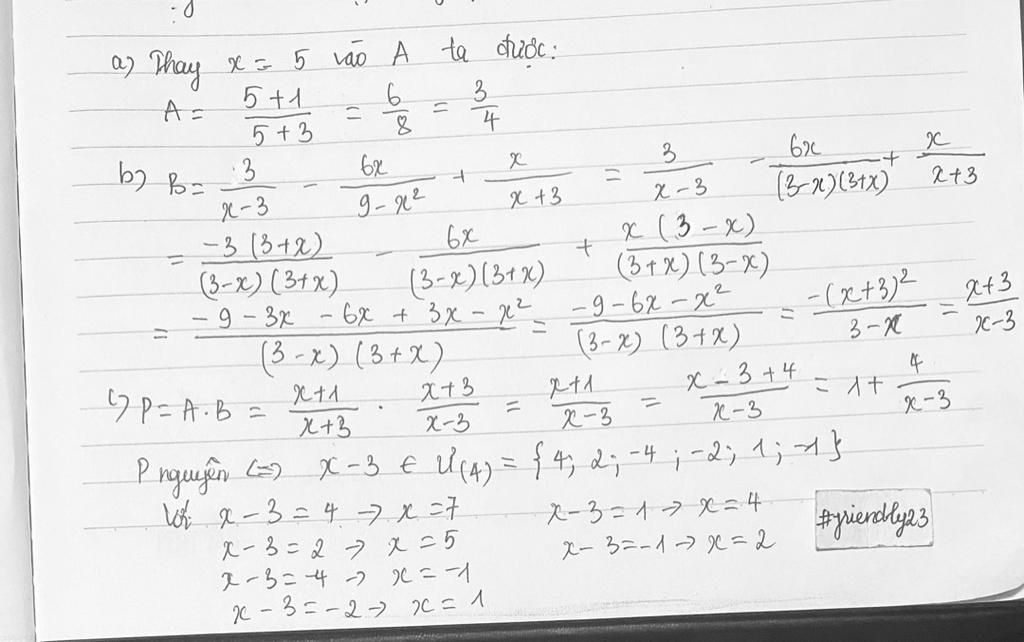 a) Thay x = 5 vào A ta được:
A = (5+1)/(5+3) = 6/8 = 3/4
b) B = 3/(x-3) - 6x/(9-x²) + x/(x+3) = 3/(x-3) - 6x/((3-x)(3+x)) + x/(x+3)
= -3(3+x)/((3-x)(3+x)) - 6x/((3-x)(3+x)) + x(3-x)/((3+x)(3-x))
= (-9-3x-6x+3x-x²)/((3-x)(3+x)) = (-9-6x-x²)/((3-x)(3+x)) = -(x+3)²/(3-x) = (x+3)/(x-3)
c) P = A.B = (x+1)/(x+3) · (x+3)/(x-3) = (x+1)/(x-3) = (x-3+4)/(x-3) = 1 + 4/(x-3)
P nguyên <=> x-3 ∈ Ư(4) = {4; 2; -4; -2; 1; -1}
x-3=4 → x=7 x-3=1 → x=4
#friendly23
x-3=2 → x=5 x-3=-1 → x=2
x-3=-4 → x=-1
x-3=-2 → x=1